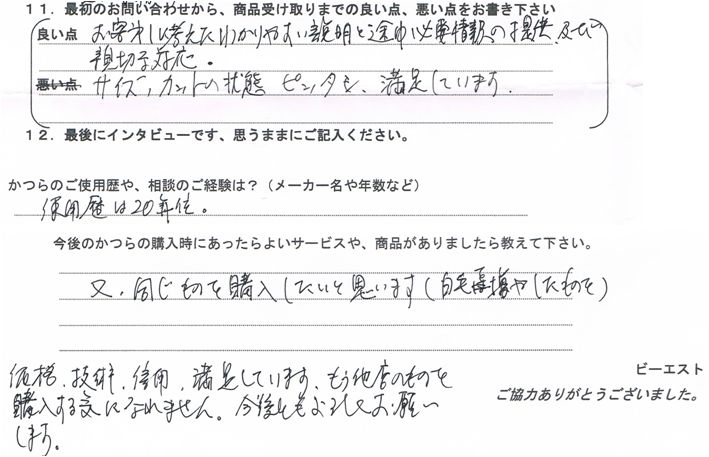 １１．最初のお問い合わせから、商品受け取りまでの良い点、悪い点をお書き下さい
良い点 お客先に考えたわかりやすい説明と途中必要情報の提供及び
親切な対応。
悪い点 サイズ、カットの状態 ピッタシ、満足しています。
１２．最後にインタビューです、思うままにご記入ください。
かつらのご使用歴や、相談のご経験は？（メーカー名や年数など）
使用歴は20年位。
今後のかつらの購入時にあったらよいサービスや、商品がありましたら教えて下さい。
又、同じものを購入したいと思います（白毛 増やしたものを）
価格、技術、信用、満足しています、もう他店のものを
購入する気になれません。今後ともよろしくお願い
します。
ビーエスト
ご協力ありがとうございました。